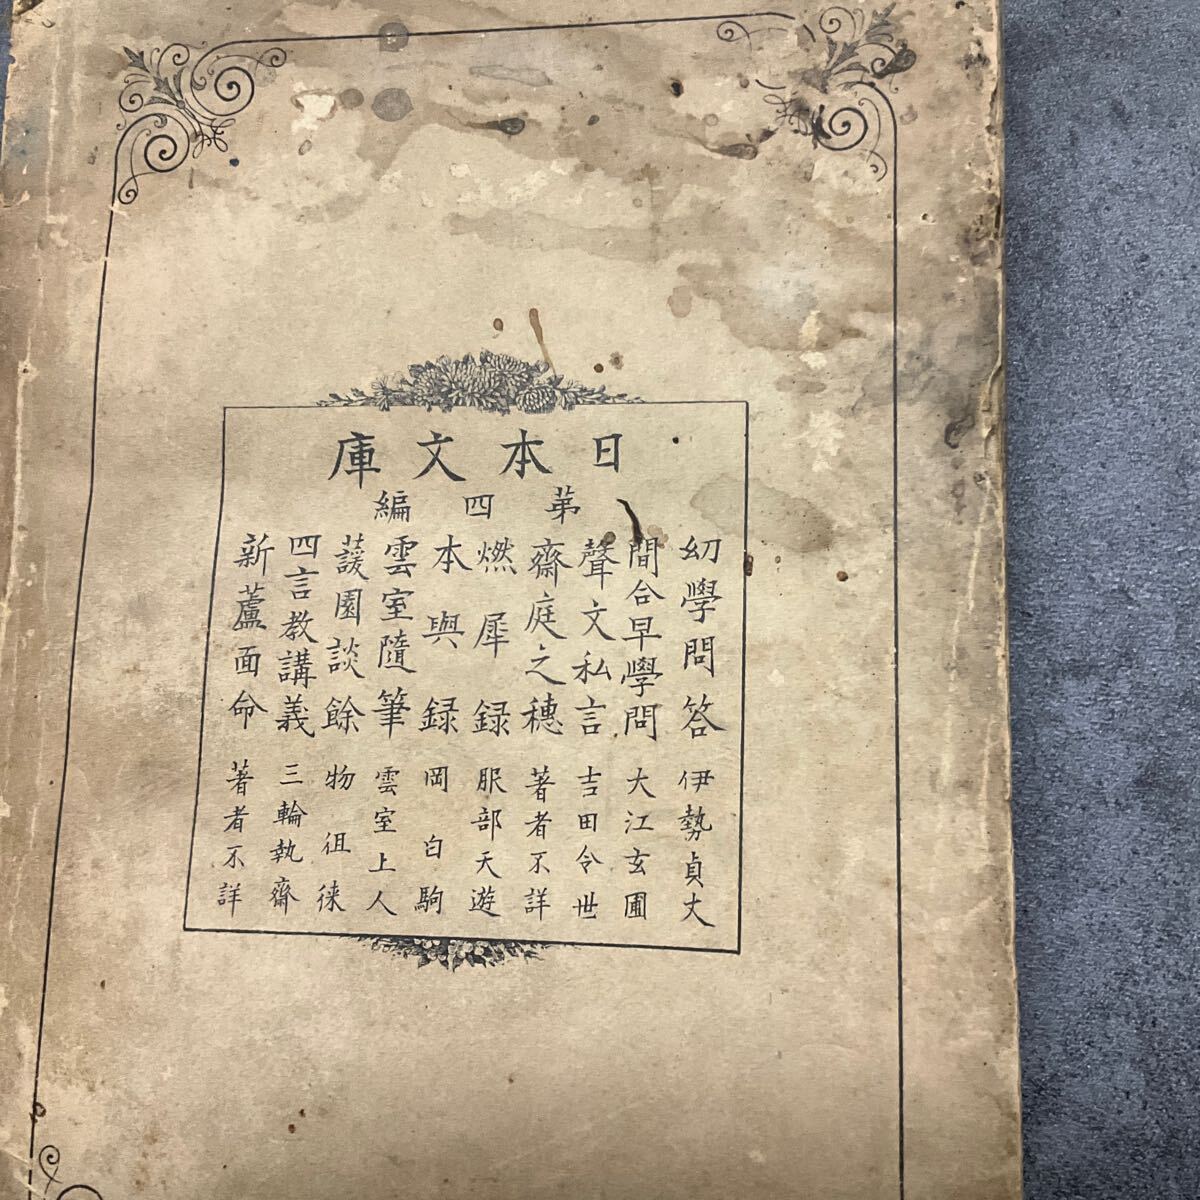 日本文庫
第四編
幼學問答 伊勢貞丈
間合早學問 大江玄圃
聲文私言 吉田令世
齋庭之穗 著者不詳
燃犀録 服部天遊
本與録 岡白駒
雲室隨筆 雲室上人
蘐園談餘 物徂徠
四言教講義 三輪執齋
新蘆面命 著者不詳